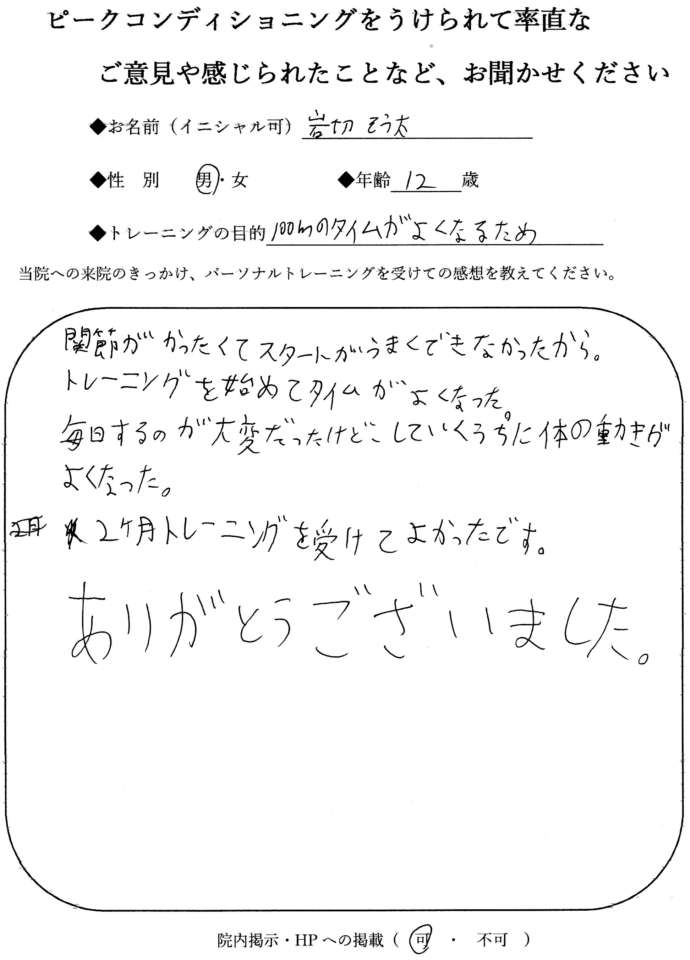 ピークコンディショニングをうけられて率直な
ご意見や感じられたことなど、お聞かせください
◆お名前（イニシャル可） 岩切 そう太
◆性 別 男・女 ◆年齢 12 歳
◆トレーニングの目的 100mのタイムがよくなるため
当院への来院のきっかけ、パーソナルトレーニングを受けての感想を教えてください。
関節がかったくてスタートがうまくできなかったから。
トレーニングを始めてタイムがよくなった。
毎日するのが大変だったけどこしていくうちに体の動きが
よくなった。
2ケ月トレーニングを受けてよかったです。
ありがとうございました。
院内掲示・HPへの掲載（ 可 ・ 不可 ）